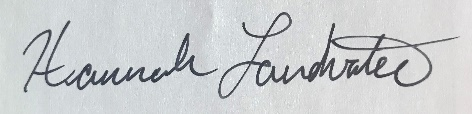 Hannah Landwater